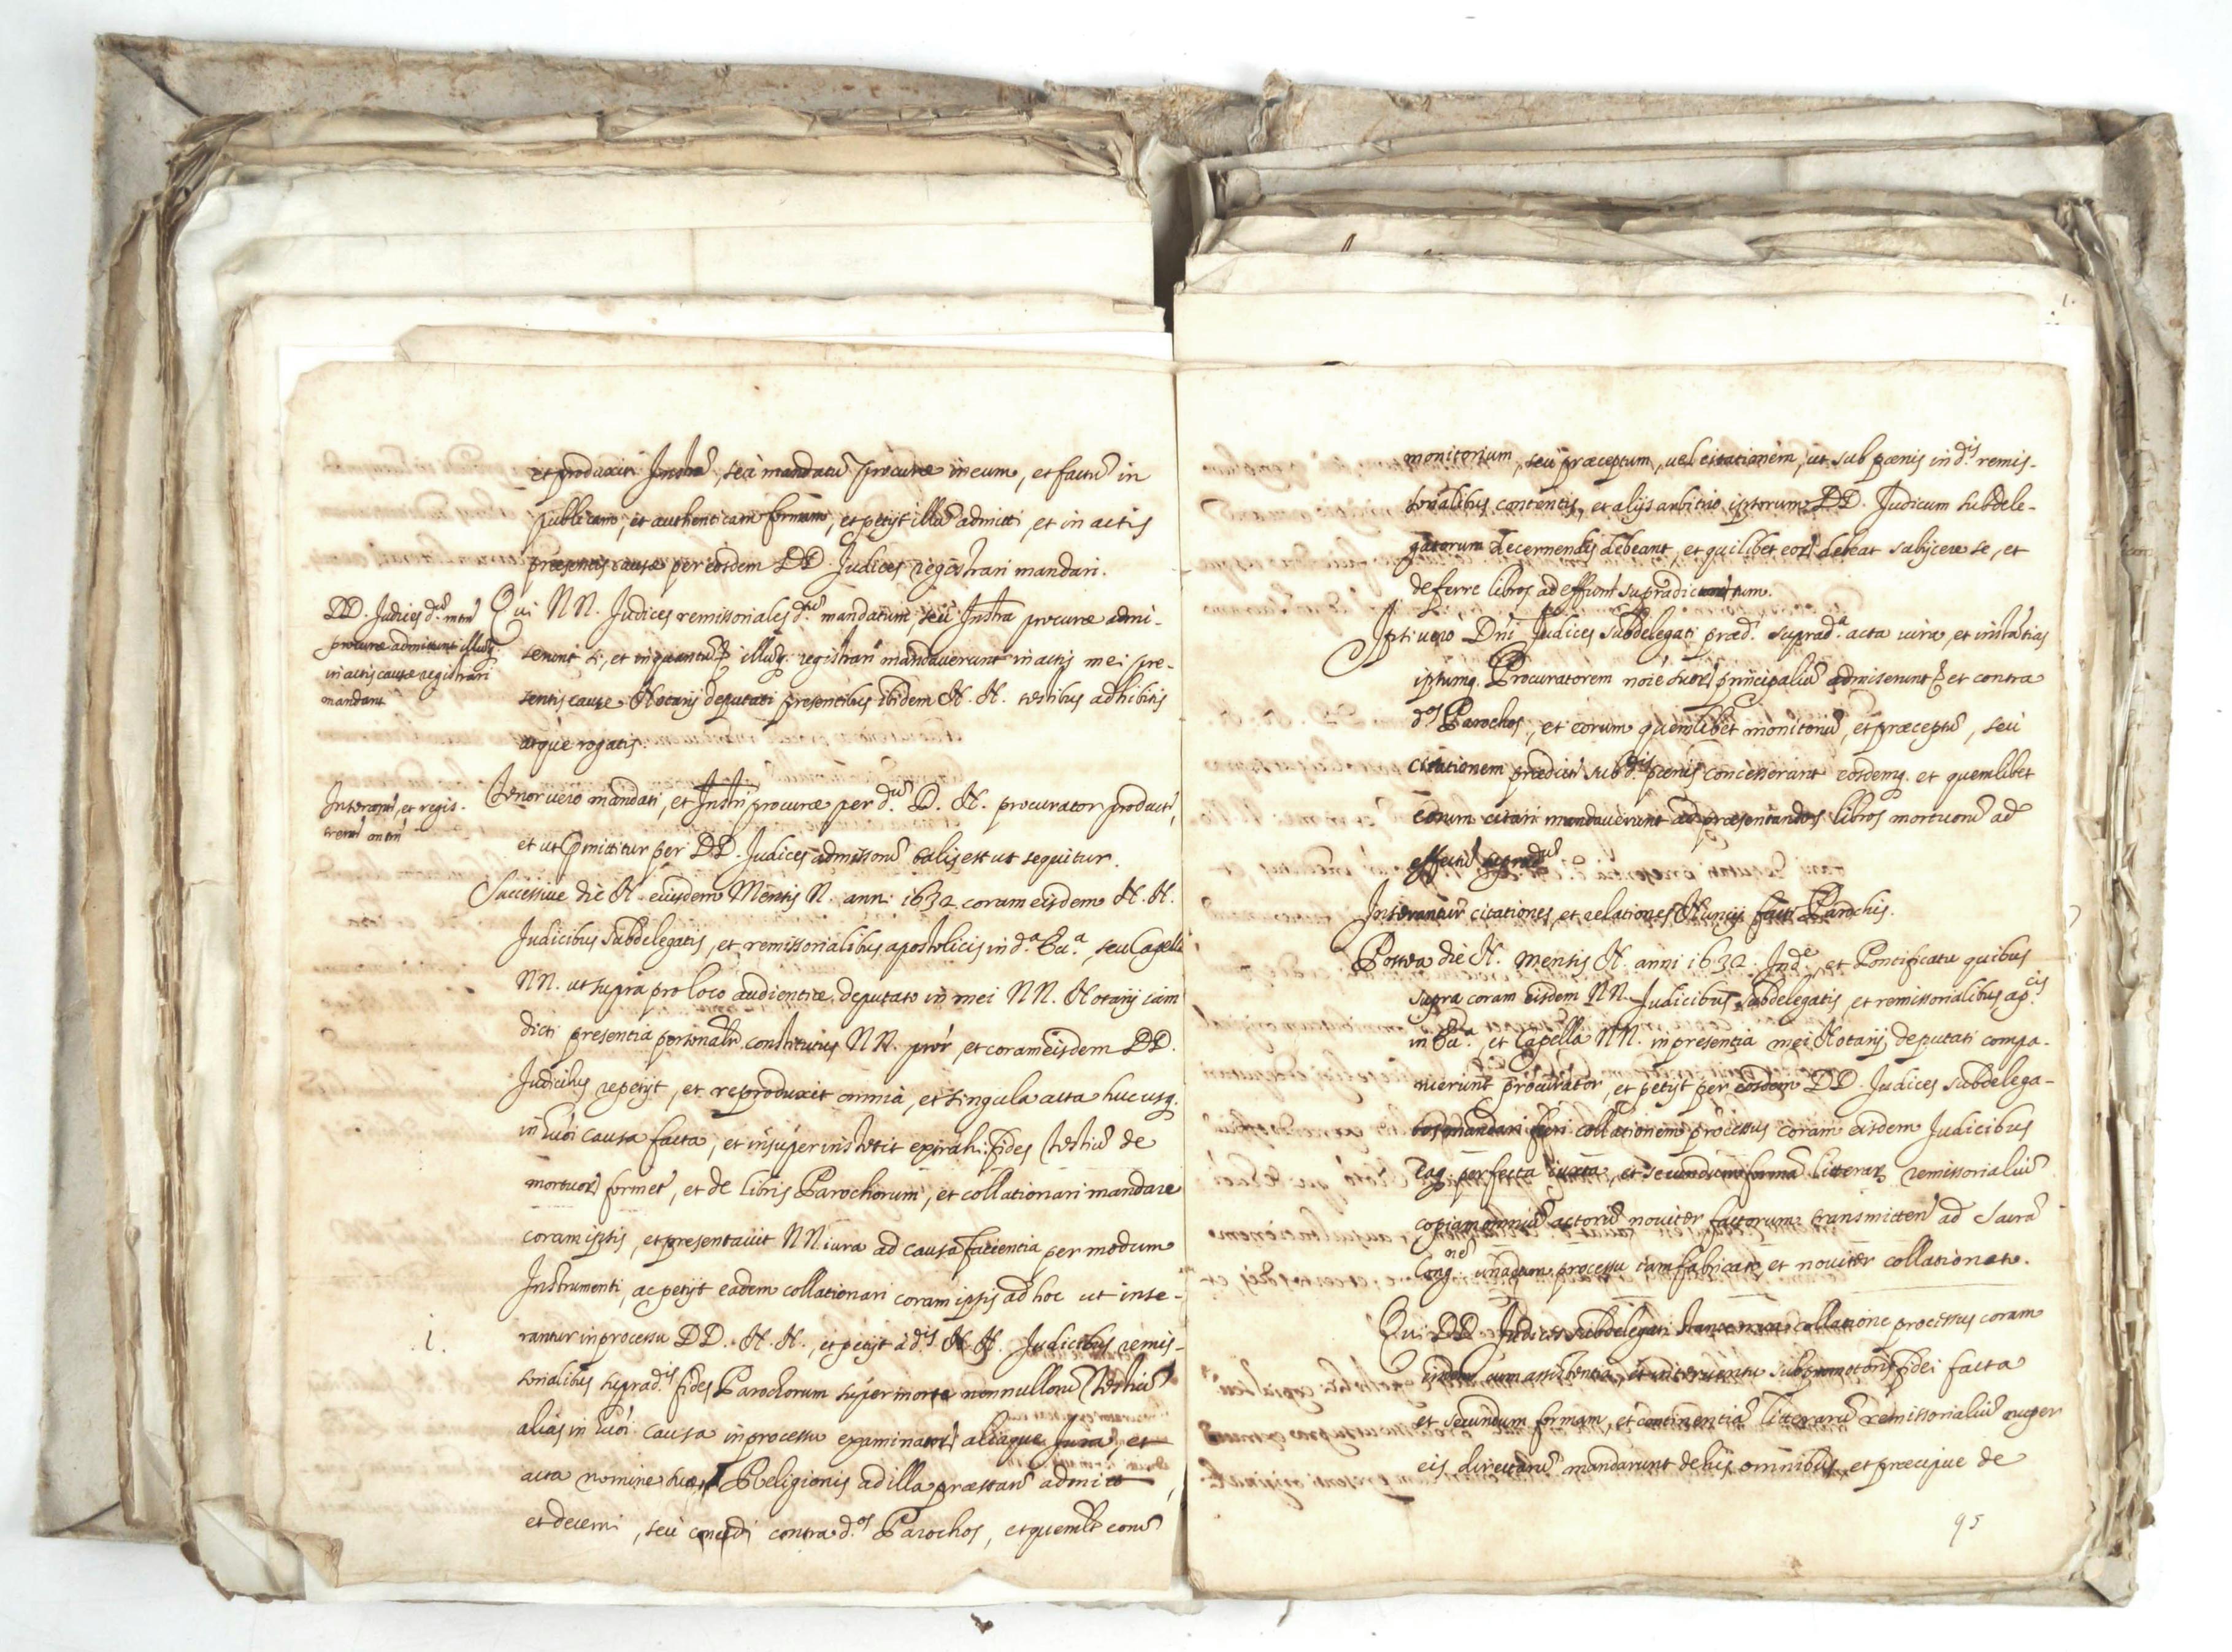 et produxit Instrũ, seù mandatũ procuræ in eum, et factũ in
publicam, et authenticam formam, et petijt illũ admitti, et in actis
præsentis causæ per eosdem DD. Judices registrari mandari.
DD. Judices d.ũ mtm̃
procuræ admittunt illũq.
in actis causæ registrari
mandant
Qui NN. Judices remissoriales d.ũ mandatum, seù Instrã procuræ admi-
serunt illũq. registrari mandaverunt in actis mei pre-
sentis cause Notarij deputati presentibus ibidem N. N. testibus adhibitis
atque rogatis.
Tenor vero mandati, et Instri procuræ per d.ũ D. N. procurator producti,
et ut pmittitur per DD. Judices admissorũ talis est ut sequitur.
Successiue die N. eiusdem Mensis N. anni 1632 coram eisdem N. N.
Judicibus subdelegatis, et remissorialibus apostolicis in d.a Ecc.a, seu Capella
NN. ut supra pro loco audientiæ deputato in mei NN. Notarij iam
dicti presentia personalr̃ constitutus NN. pror̃, et coram eisdem DD.
Judicibus repetijt, et reproduxit omnia, et singula acta hucusq.
in hmõi causa facta, et insuper institit extrahi fides testiũ de
formet, et de libris Parochorum, et collationari mandare
coram ipsis, et presentauit NN. iura ad causã facientia per modum
Instrumenti, ac petijt eadem collationari coram ipsis ad hoc ut inse-
1.
rantur in processu DD. N. N., et petijt à d.is N. N. Judicibus remis-
sorialibus suprad.is fides Parochorum super morte nonnullorũ testiũ
alias in hmõi causa in processu examinator, aliaque Jura, et
acta nomine suæ Religionis ad illa præstan̄ admitti,
et decerni, seù concedi contra d.os Parochos, et quemlt̃ eorũ
monitorium, seu præceptum, uel citationem, ut sub pænis in d.is remis-
sorialibus contentis, et alijs arbitrio ipsorum DD. Judicum subdele-
gatorum decernendis debeant, et quilibet eor. debeat subijcere se, et
deferre libros ad effum supradictum.
Ipsi verò Dñi Judices subdelegati præd.i suprad.a acta iura, et instãtias
ipsumq. Procuratorem noiẽ suor. principaliũ admiserunt, et contra
d.os Parochos, et eorum quemlibet monitoriũ, et præceptũ, seù
citationem prædict. sub d.is pænis concesserunt eosdemq. et quemlibet
eorum citari mandaverunt ad præsentandos libros mortuorũ ad
effectũ suprad.ũ
Inserantur citationes, et relationes Nuncij Parochis.
Postea die N. Mensis N. anni 1632. Ind.e, et Pontificatu quibus
supra coram eisdem NN. Judicibus subdelegatis, et remissorialibus ap.cis
in Ecc.a, et Capella NN. in presentia mei Notarij deputati compa-
ruerunt procurator, et petijt per eosdem DD. Judices subdelega-
tos mandari fieri collationem processus coram eisdem Judicibus
eaq. perfecta iuxta, et secundum formã litterar. remissorialiũ
copiam omniũ actorũ nouiter factorum transmitten ad Sacrã
Cong.nem unà cum processu iam fabricato et nouiter collationato.
Qui DD. Judices subdelegati stante collatione processus coram
eisdem cum assistentia, et interuentu subpromotoris fidei facta
et secundum formam, et continentiã litterarũ remissorialiũ nuper
eis directarũ mandarunt de hijs omnibus, et præcipue de
95
1.